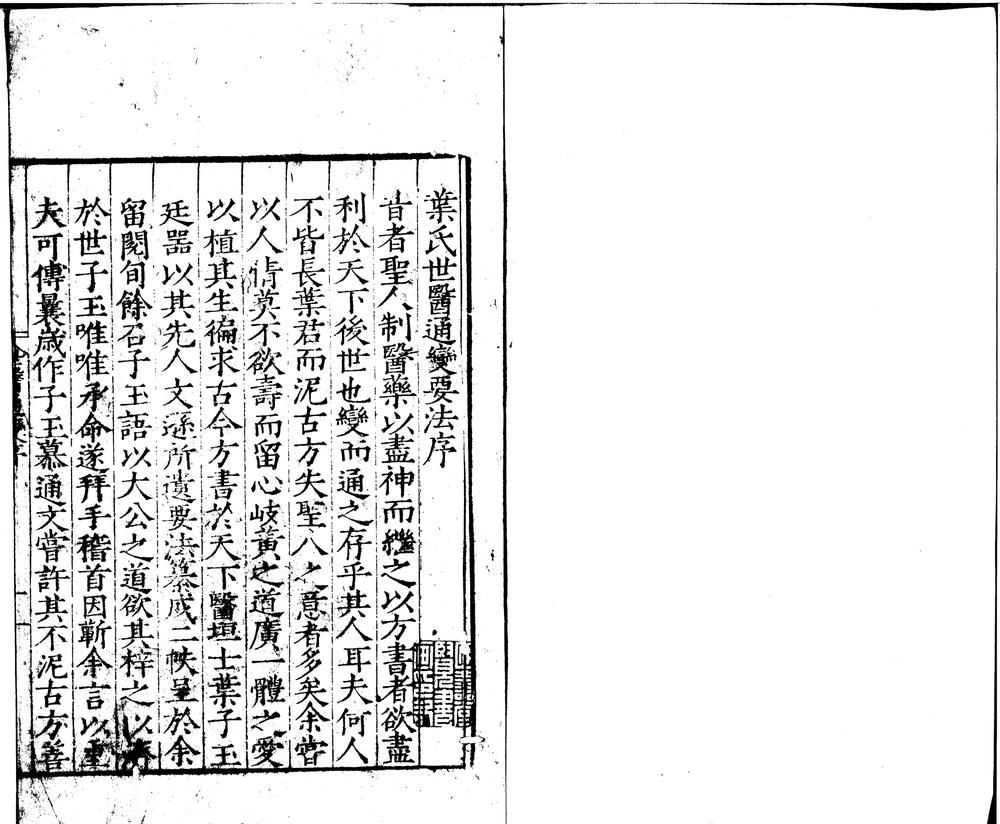 葉氏世醫通變要法序
昔者聖人制醫藥以盡神而繼之以方書者欲盡
利於天下後世也變而通之存乎其人耳夫何人
不皆長葉君而泥古方失聖人之意者多矣余嘗
以人情莫不欲壽而留心岐黃之道廣一體之愛
以植其生徧求古今方書於天下醫垣士葉子玉
廷器以其先人文遜所遺要法纂成二帙呈於余
留閱旬餘召子玉語以大公之道欲其梓之以
於世子玉唯唯承命遂拜手稽首因蘄余言以重
夫可傳曩歲作子玉慕通文嘗許其不泥古方善